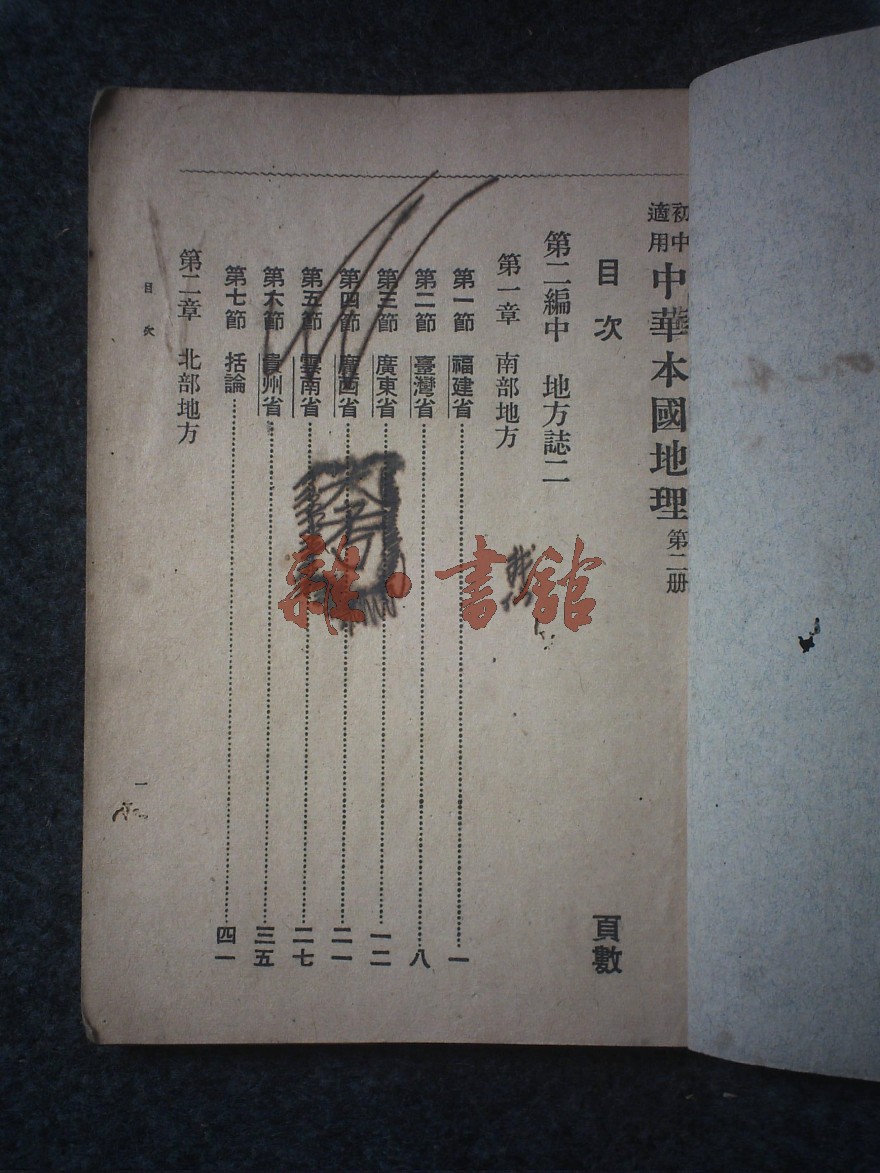 初中適用 中華本國地理 第二册
目次
頁數
第二編中 地方誌二
第一章 南部地方
第一節 福建省 一
第二節 臺灣省 八
第三節 廣東省 一二
第四節 廣西省 二一
第五節 雲南省 二七
第六節 貴州省 三五
第七節 括論 四一
第二章 北部地方
目次
一
雜·書館